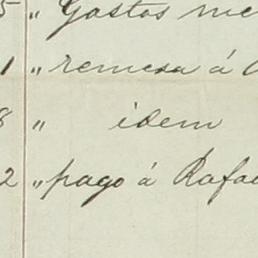 5 " Gastos me
1 " remesa á
8 " idem
2 " pago á Rafae